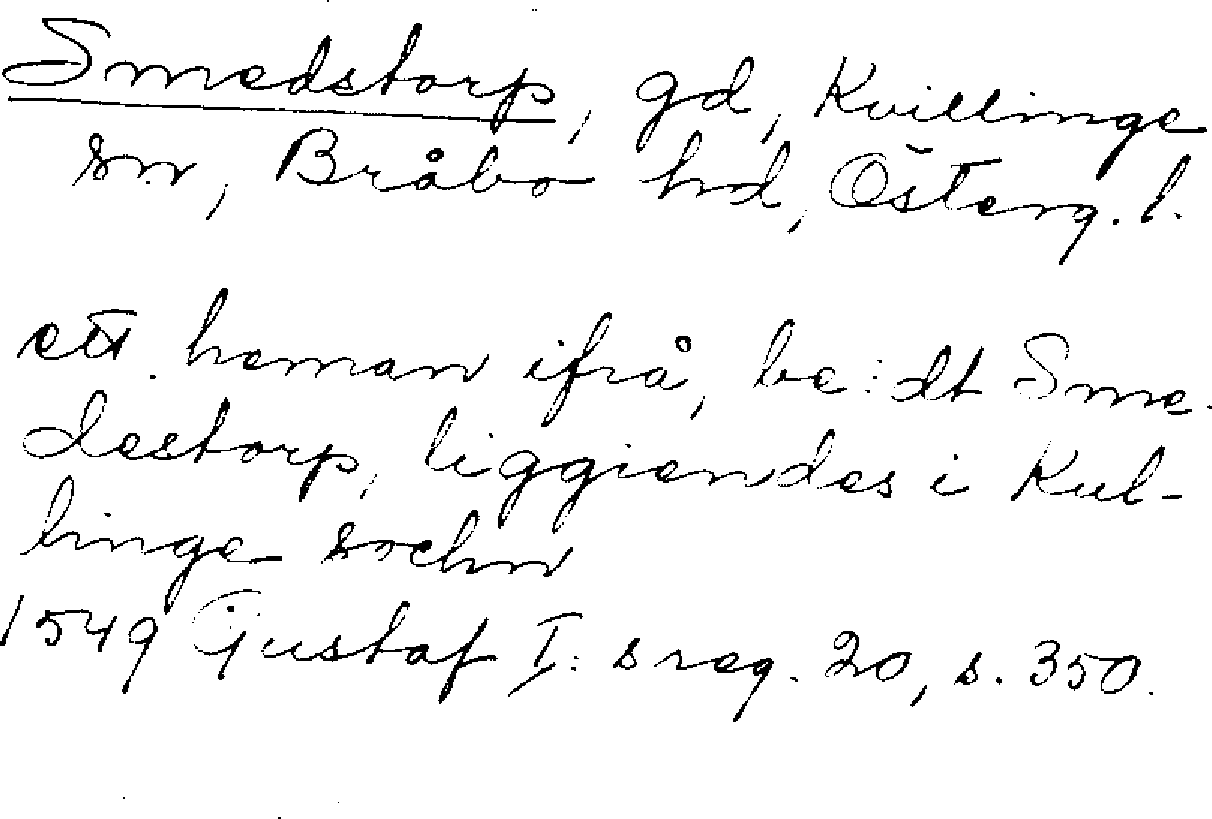 Smedstorp, gd, Kvillinge
sn, Bråbo hd, Österg. l.
ett heman ifrå, be:dt Sme-
destorp, liggiendes i Kul-
linge sochn
1549 Gustaf I:s reg. 20, s. 350.